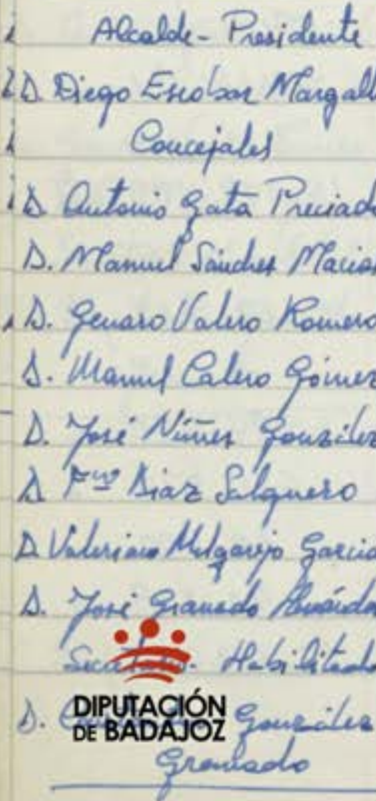 Alcalde-Presidente
D. Diego Escobar Margall
Concejales
D. Antonio Gata Preciado
D. Manuel Sánches Macias
D. Genaro Valero Romero
D. Manuel Calero Gómez
D. José Núñes González
D Fco Diaz Salguero
D Valeriano Melgarejo Garcia
D. José Granado
Secretario. Habilitado
DIPUTACIÓN
DE BADAJOZ
D. González
Granado